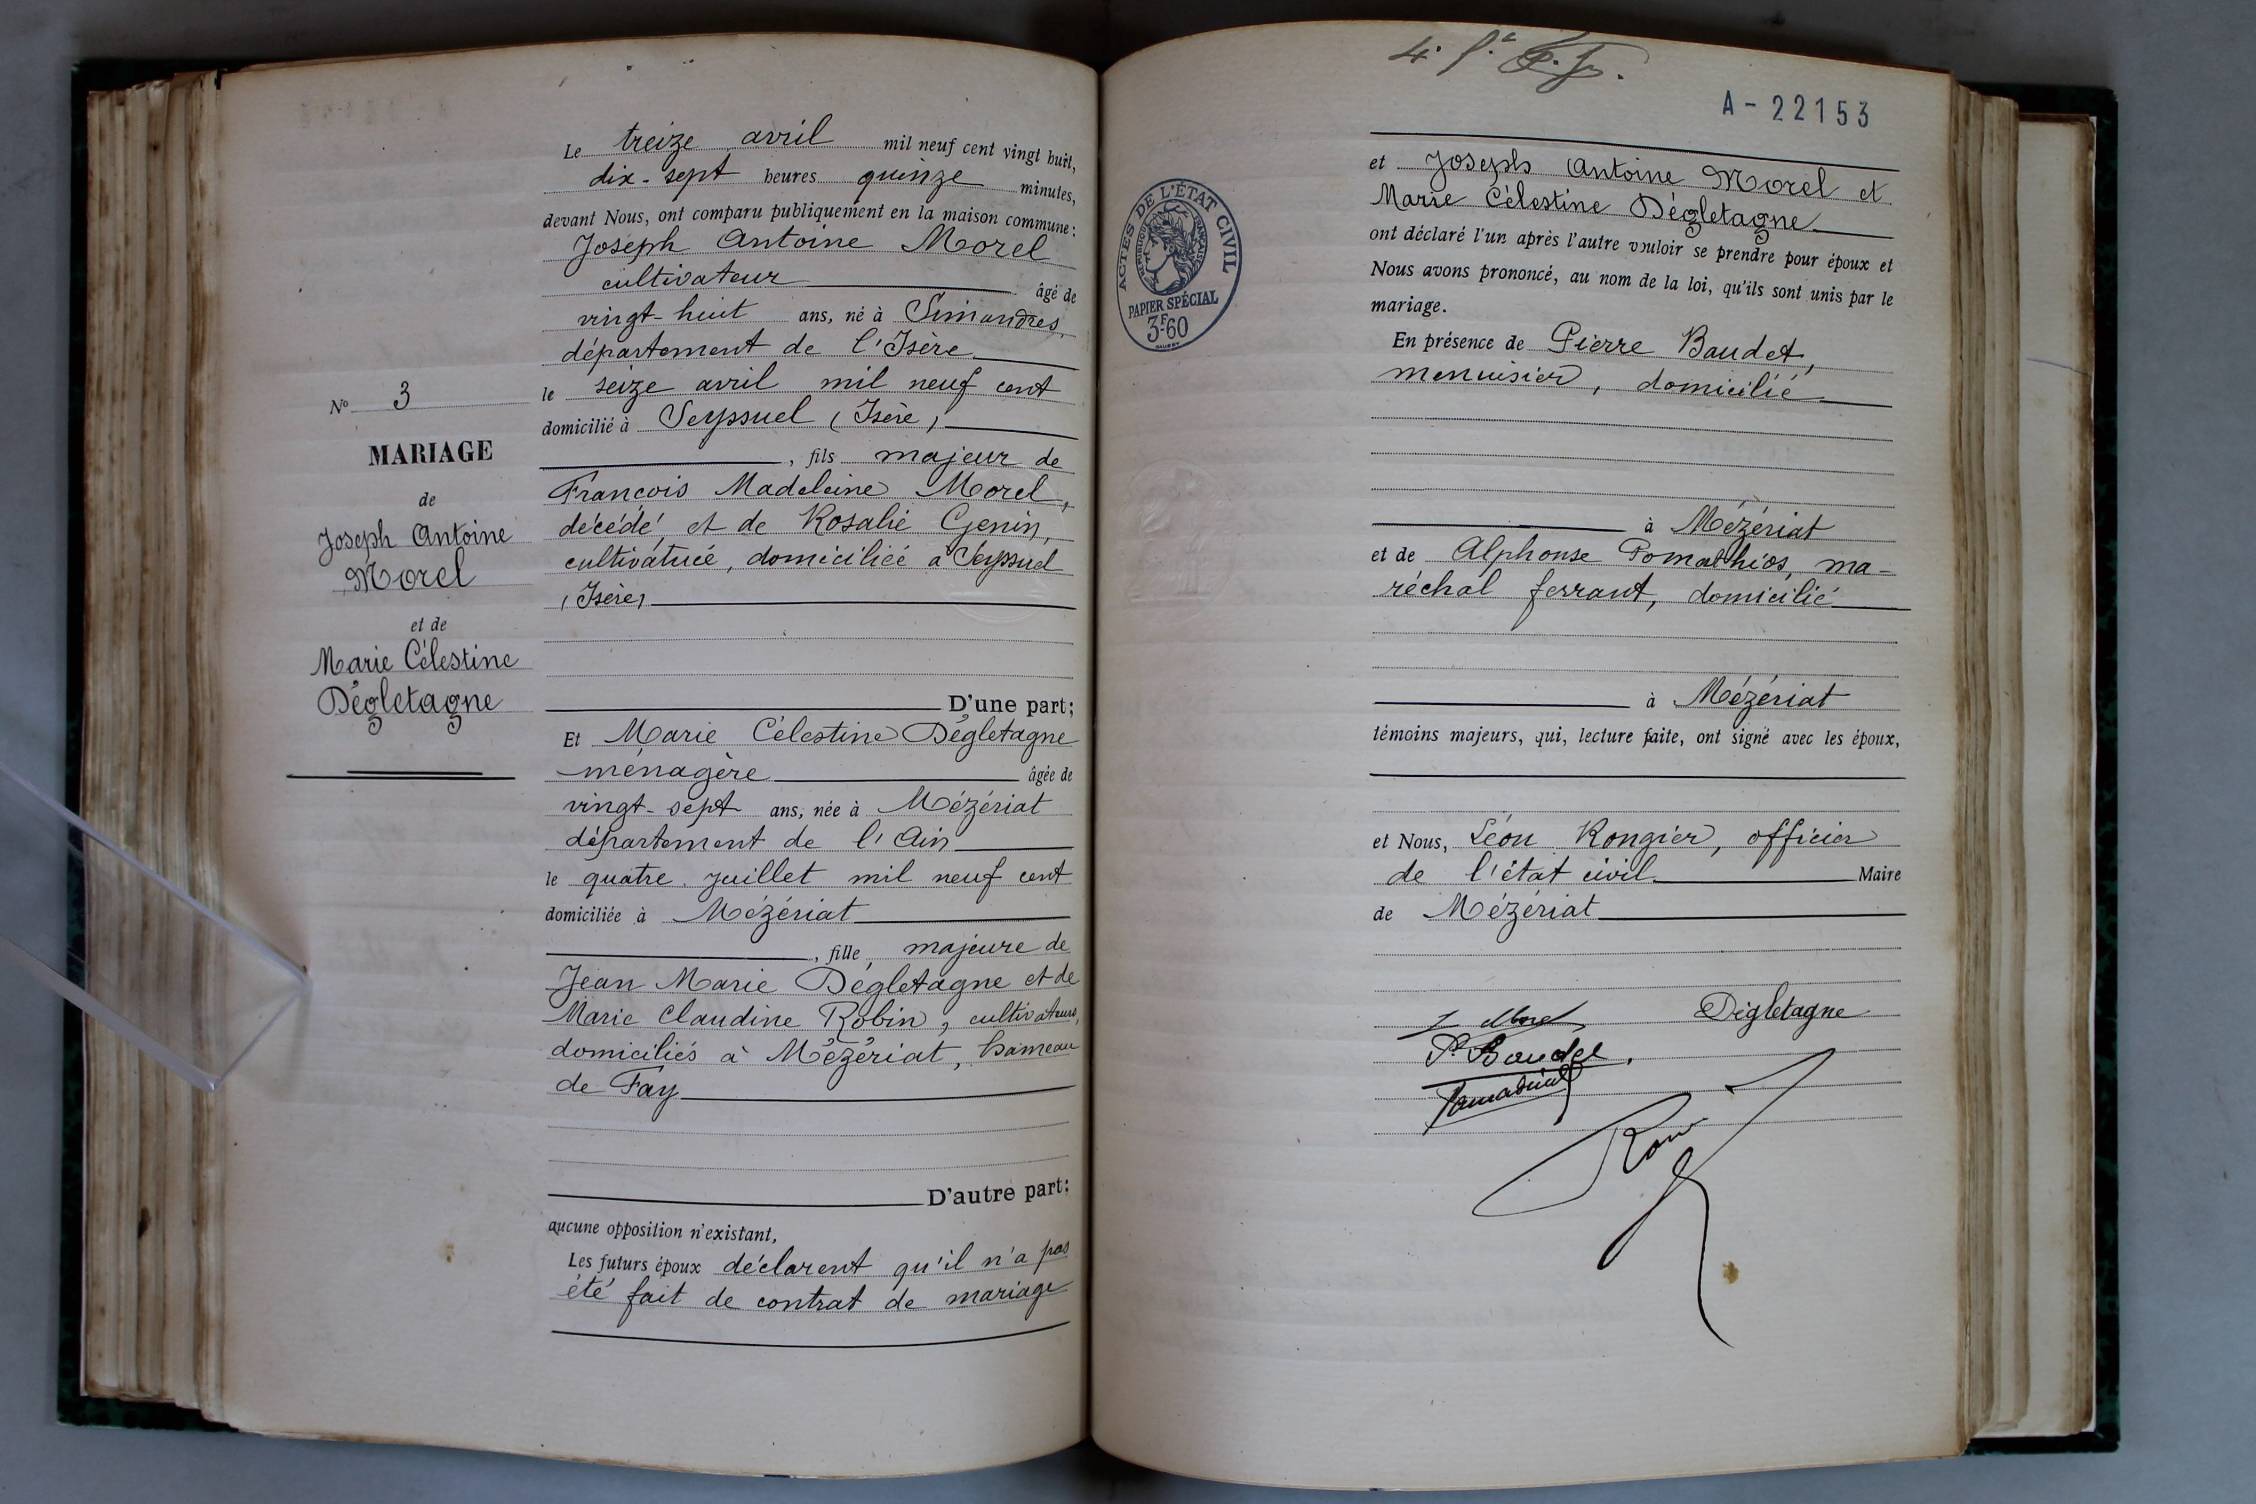 Nº 3
MARIAGE
de
Joseph Antoine
Morel
et de
Marie Célestine
Dégletagne
Le treize avril mil neuf cent vingt huit,
dix-sept heures quinze minutes,
devant Nous, ont comparu publiquement en la maison commune:
Joseph Antoine Morel
cultivateur âgé de
vingt-huit ans, né à Simandres,
département de l'Isère
le seize avril mil neuf cent
domicilié à Seyssuel (Isère)
, fils majeur de
François Madeleine Morel,
décédé et de Rosalie Genin,
cultivatrice, domiciliée à Seyssuel
(Isère)
D'une part;
Et Marie Célestine Dégletagne
ménagère âgée de
vingt-sept ans, née à Mézériat
département de l'Ain
le quatre juillet mil neuf cent
domiciliée à Mézériat
, fille majeure de
Jean Marie Dégletagne et de
Marie Claudine Robin, cultivateurs,
domiciliés à Mézériat, hameau
de Fay
D'autre part;
aucune opposition n'existant,
Les futurs époux déclarent qu'il n'a pas
été fait de contrat de mariage
A-22153
ACTES DE L'ÉTAT CIVIL
RÉPUBLIQUE FRANÇAISE
PAPIER SPÉCIAL
3F60
et Joseph Antoine Morel et
Marie Célestine Dégletagne
ont déclaré l'un après l'autre vouloir se prendre pour époux et
Nous avons prononcé, au nom de la loi, qu'ils sont unis par le
mariage.
En présence de Pierre Baudet,
menuisier, domicilié
à Mézériat
et de Alphonse Pomathios, ma-
réchal ferrant, domicilié
à Mézériat
témoins majeurs, qui, lecture faite, ont signé avec les époux,
et Nous, Léon Rongier, officier
de l'état civil Maire
de Mézériat
J Morel Dégletagne
P. Baudet